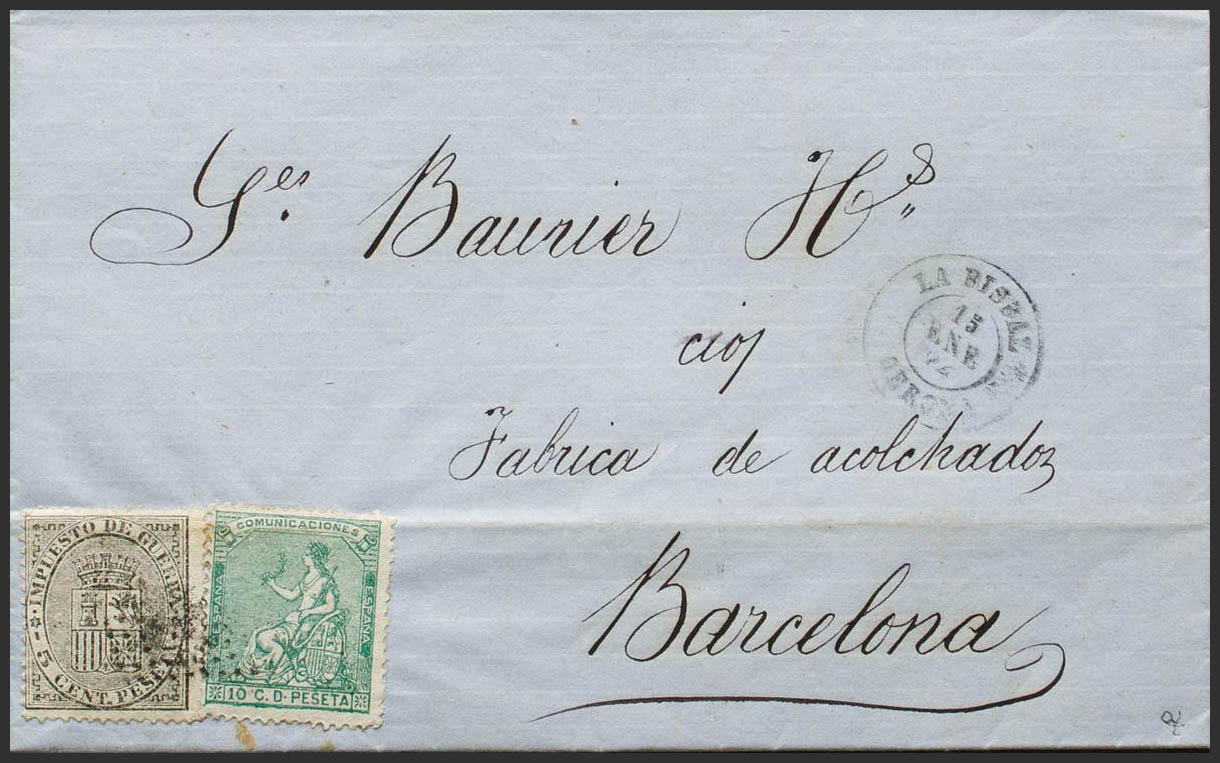 Sres. Baurier Hs
LA BISBAL
15
ENE
74
GERONA
Fabrica de acolchados
Barcelona
IMPUESTO DE GUERRA
5 CENT. PESETA
COMUNICACIONES
ESPAÑA
ESPAÑA
10 C. D. PESETA